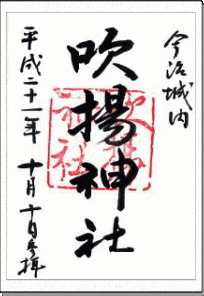 今治城内
吹揚神社
平成二十一年 十月十日参拝